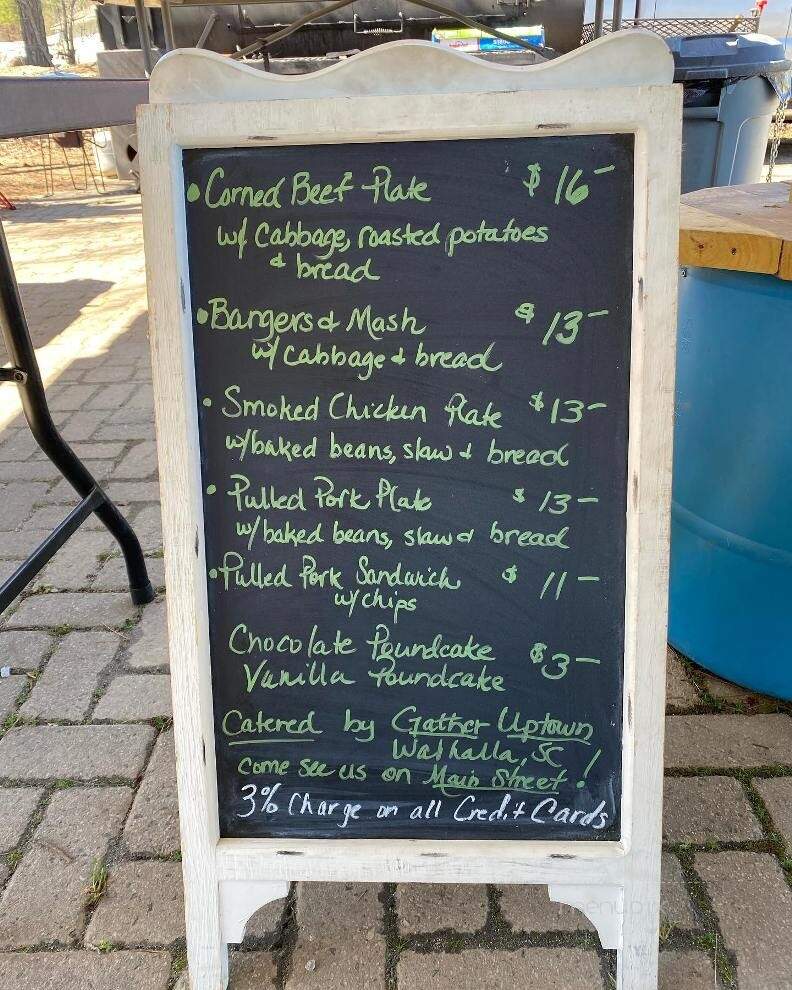 • Corned Beef Plate $16-
w/ Cabbage, roasted potatoes
& bread
• Bangers & Mash $13-
w/ cabbage & bread
• Smoked Chicken Plate $13-
w/baked beans, slaw & bread
• Pulled Pork Plate $13-
w/baked beans, slaw & bread
• Pulled Pork Sandwich $11-
w/chips
Chocolate Poundcake $3-
Vanilla Poundcake
Catered by Gather Uptown
Walhalla, SC
Come see us on Main Street!
3% Charge on all Credit Cards